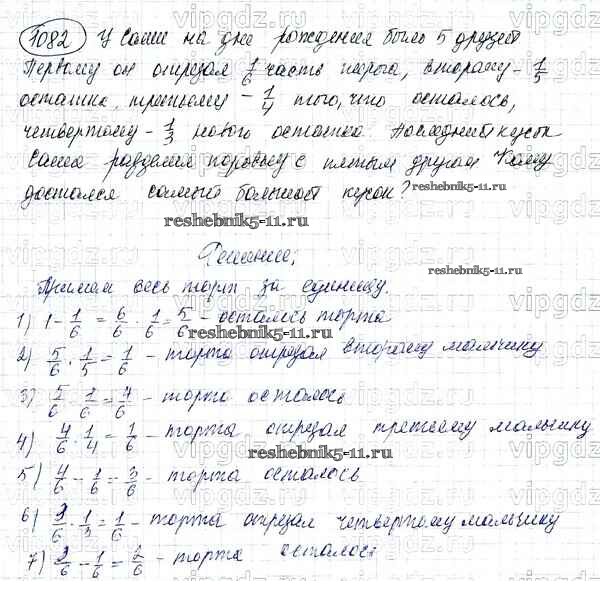 1082 У Саши на дне рождения было 5 друзей
Первому он отрезал 1/6 часть пирога, второму - 1/5
остатка, третьему - 1/4 того, что осталось,
четвертому - 1/3 нового остатка. Последний кусок
Саша разделил поровну с пятым другом. Кому
достался самый больший кусок?
reshebnik5-11.ru
reshebnik5-11.ru
Решение:
Примем весь торт за единицу.
1) 1 - 1/6 = 6/6 - 1/6 = 5/6 - осталось торта
reshebnik5-11.ru
2) 5/6 · 1/5 = 1/6 - торта отрезал второму мальчику
3) 5/6 - 1/6 = 4/6 - торта осталось
4) 4/6 · 1/4 = 1/6 - торта отрезал третьему мальчику
reshebnik5-11.ru
5) 4/6 - 1/6 = 3/6 - торта осталось
6) 3/6 · 1/3 = 1/6 - торта отрезал четвертому мальчику
7) 3/6 - 1/6 = 2/6 - торта осталось